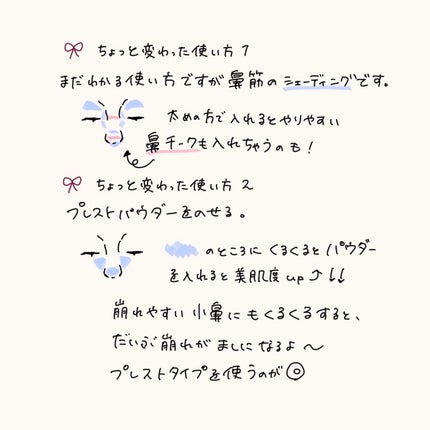 ちょっと変わった使い方 1
まだわかる使い方ですが鼻筋のシェーディングです。
太めの方で入れるとやりやすい
鼻チークも入れちゃうのも!
ちょっと変わった使い方 2
プレストパウダーをのせる。
のところに くるくるとパウダー
を入れると美肌度up⤴↓↓
崩れやすい小鼻にもくるくるすると、
だいぶ崩れがましになるよ〜
プレストタイプを使うのが◎